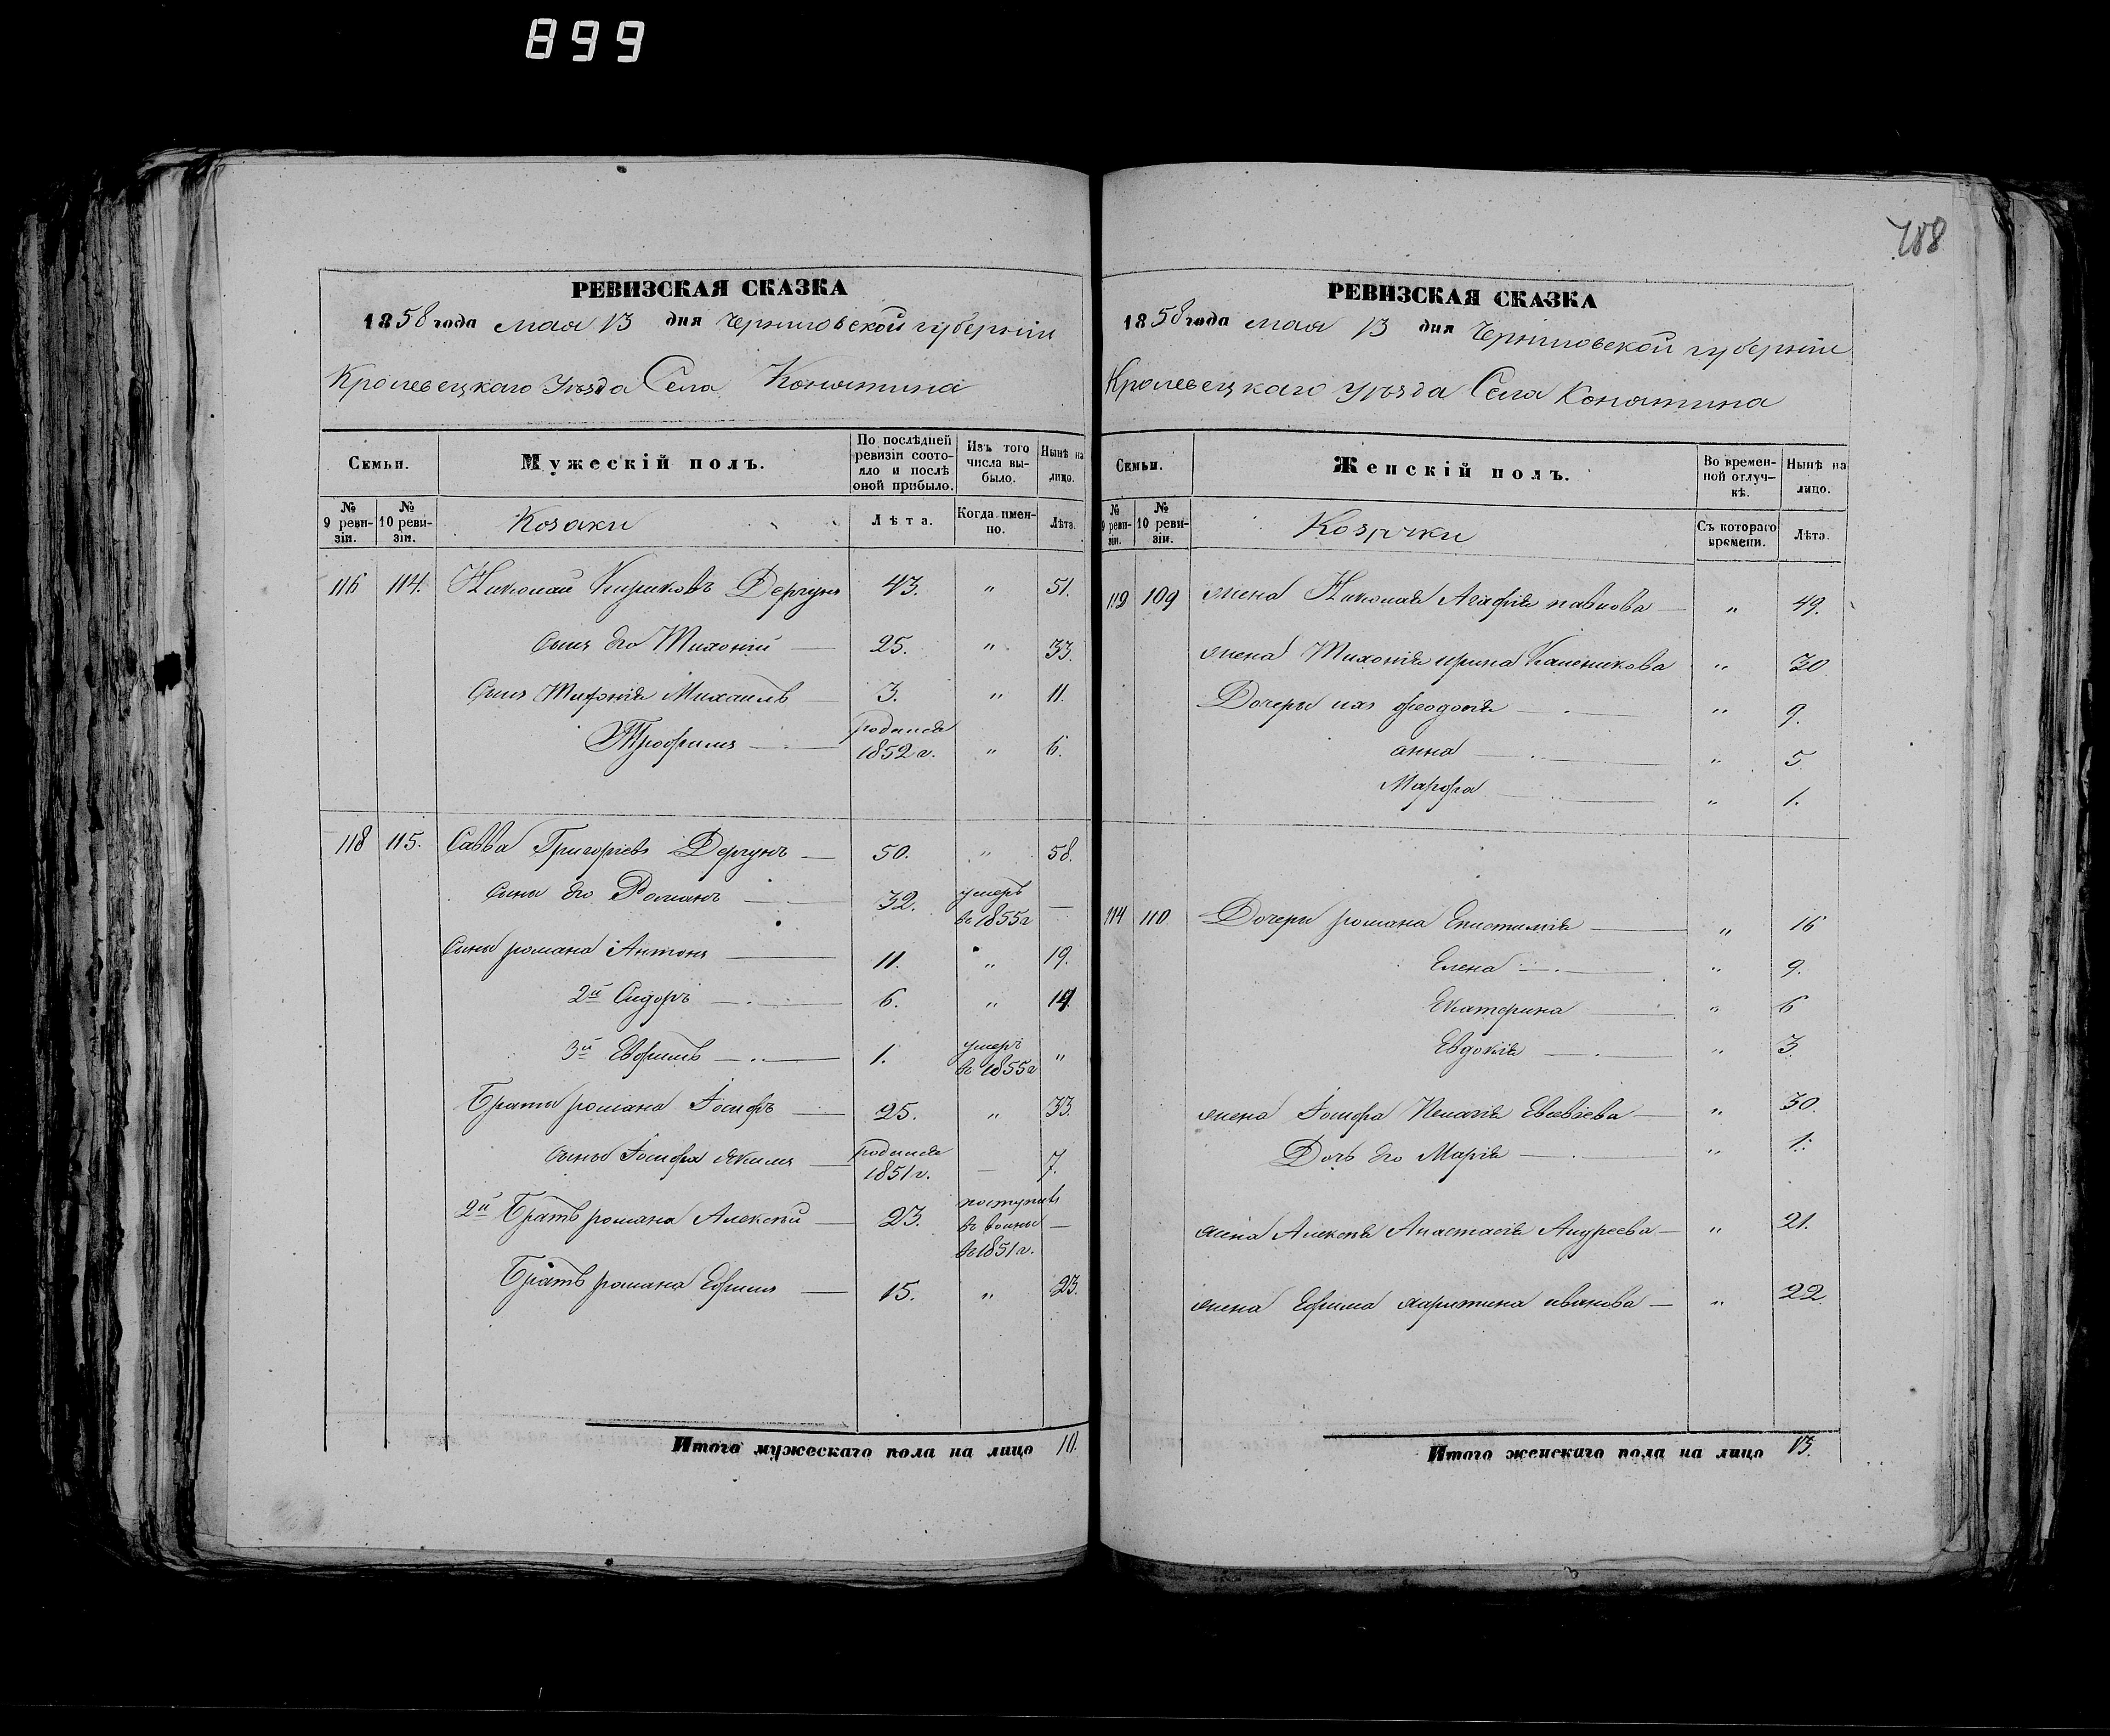 899
788
РЕВИЗСКАЯ СКАЗКА
1858 года мая 13 дня Черниговской губерніи
Кролевецкаго Уѣзда Села Конятина
Семьи.
Мужескій полъ.
По послѣдней ревизіи состояло и послѣ оной прибыло.
Изъ того числа выбыло.
Нынѣ на лицо.
№ 9 ревизіи.
№ 10 ревизіи.
Козаки
Лѣта.
Когда именно.
Лѣта.
116 114. Николай Кириковъ Дергунъ 43. " 51.
Сынъ его Тихоній — 25. " 33.
Сынъ Тихонія Михаилъ — 3. " 11.
Трофимъ — родился 1852 г. " 6.
118 115. Савва Григорьевъ Дергунъ — 50. " 58.
Сынъ его Романъ — 32. умеръ въ 1855 г —
Сыны романа Антонъ — 11. " 19.
2й Сидоръ — 6. " 14
3й Евфимъ — 1. умеръ въ 1855 г "
Братъ романа Іосифъ — 25. " 33.
Сынъ Іосифа Якимъ — родился 1851 г. — 7.
2й Братъ романа Алексѣй — 23. поступилъ въ воины в 1851 г. —
Братъ романа Ефимъ — 15. " 23.
Итого мужескаго пола на лицо 10.
РЕВИЗСКАЯ СКАЗКА
1858 года мая 13 дня Черниговской губерніи
Кролевецкаго Уѣзда Села Конятина
Семьи.
Женскій полъ.
Во временной отлучкѣ.
Нынѣ на лицо.
№ 9 ревизіи.
№ 10 ревизіи.
Козачки
Съ котораго времени.
Лѣта.
109 жена Николая Агафія павлова — " 49.
жена Тихонія ирина Калѣникова " 30
Дочери ихъ феодосія — " 9.
анна — " 5
Марфа — " 1.
114 110. Дочери романа Епистимія — " 16
Елена — " 9.
Екатерина — " 6
Евдокія — " 3
жена Іосифа Пелагія Евсѣева — " 30.
Дочь его Марія — " 1.
жена Алексѣя Анастасія Андреева — " 21.
жена Ефима харитина иванова — " 22.
Итого женскаго пола на лицо 13.